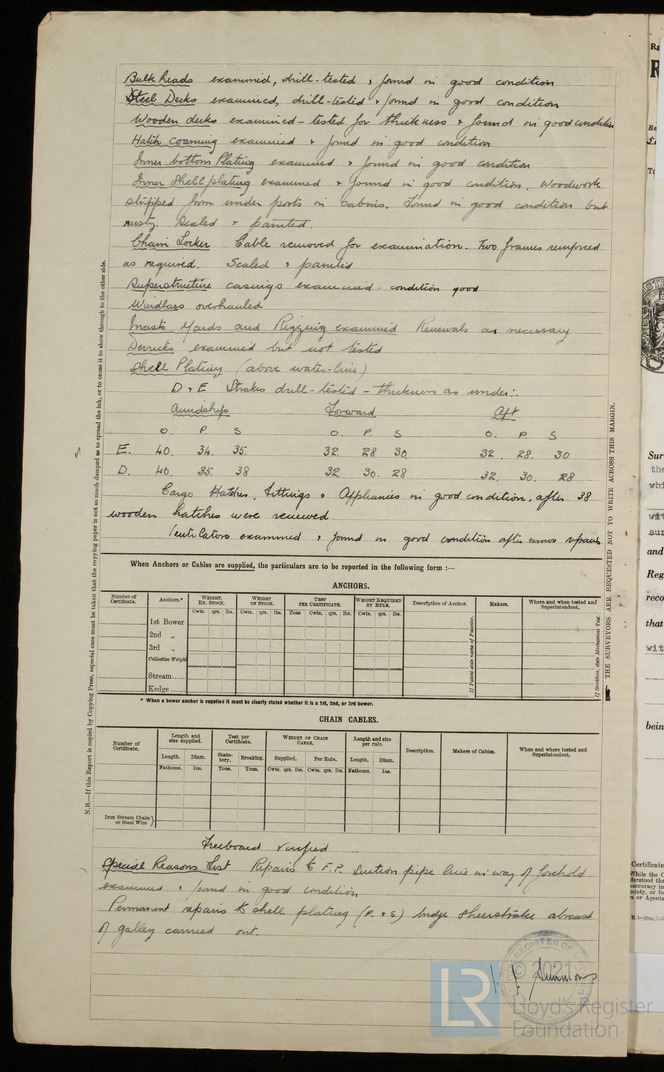 Bulkheads examined, drill-tested & found in good condition
Steel Decks examined, drill-tested & found in good condition
Wooden decks examined - tested for thickness & found in good condition
Hatch coaming examined & found in good condition
Inner bottom Plating examined & found in good condition
Inner Shell plating examined & found in good condition. Woodwork
stripped from under ports in cabins. Found in good condition but
rusty. Scaled & painted.
Chain Locker Cable removed for examination. Two frames reinforced
as required. Scaled & painted
Superstructure casings examined condition good
Windlass overhauled
Masts, Yards and Rigging examined Renewals as necessary
Derricks examined but not tested
Shell Plating (above water-line)
D & E Strakes drill-tested - thickness as under:-
Amidships Forward Aft
O. P. S O. P. S O. P. S
E. 40. 34. 35. 32. 28 30. 32. 28. 30
D. 40. 35. 38 32. 30. 28 32. 30. 28
Cargo Hatches, Fittings & Appliances in good condition, after 38
wooden hatches were renewed
Ventilators examined & found in good condition after minor repairs
When Anchors or Cables are supplied, the particulars are to be reported in the following form :—
ANCHORS.
Number of Certificate. Anchors.* WEIGHT, EX. STOCK. WEIGHT OF STOCK. TEST PER CERTIFICATE. WEIGHT REQUIRED BY RULE. Description of Anchor. Makers. Where and when tested and Superintendent.
Cwts. qrs. lbs. Cwts. qrs. lbs. Tons Cwts. qrs. lbs. Cwts. qrs. lbs.
1st Bower
2nd „
3rd „
Collective Weight
Stream
Kedge
If Patent state name of Patentee.
If Stockless, state Mechanical Test.
* When a bower anchor is supplied it must be clearly stated whether it is a 1st, 2nd, or 3rd bower.
CHAIN CABLES.
Number of Certificate. Length and size supplied. Test per Certificate. WEIGHT OF CHAIN CABLE. Length and size per rule. Description. Makers of Cables. When and where tested and Superintendent.
Length. Diam. Statutory. Breaking. Supplied. Per Rule. Length. Diam.
Fathoms. Ins. Tons. Tons. Cwts. qrs. lbs. Cwts. qrs. lbs. Fathoms. Ins.
Iron Stream Chain or Steel Wire
Freeboard verified
Special Reasons List Repairs to F.P. suction pipe line in way of forehold
examined & found in good condition
Permanent repairs to shell plating (P. & S) bridge sheerstrake abreast
of galley carried out.
N.B.—If this Report is copied by Copying Press, especial care must be taken that the copying paper is not so much damped as to spread the ink, or to cause it to show through to the other side.
THE SURVEYORS ARE REQUESTED NOT TO WRITE ACROSS THIS MARGIN.
© 2021
LR
Lloyd's Register
Foundation